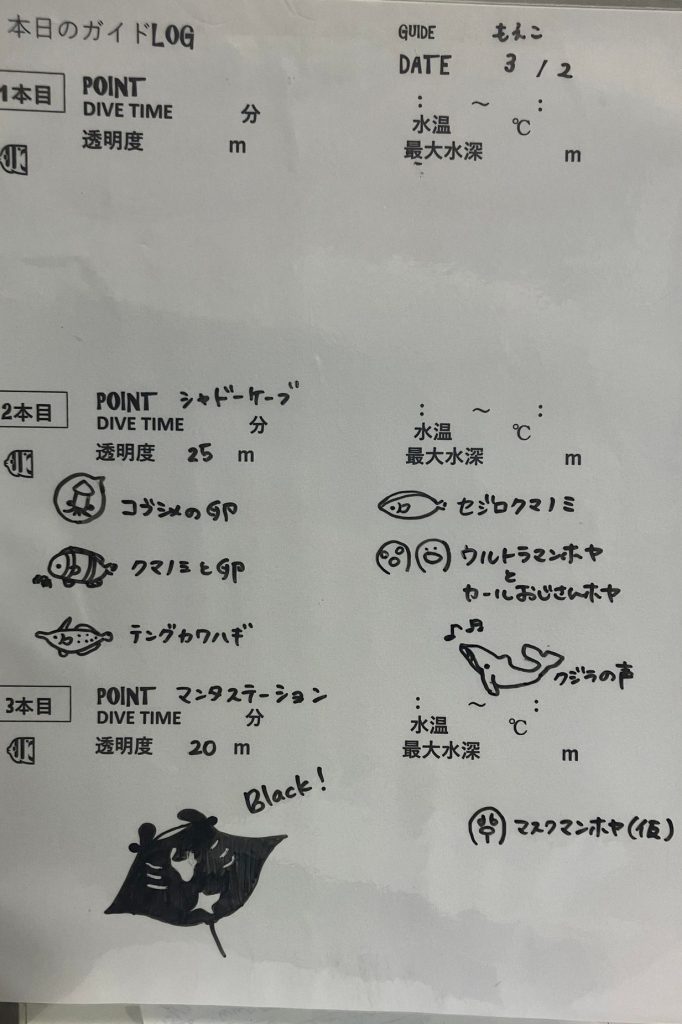 本日のガイドLOG
GUIDE もえこ
DATE 3 / 2
1本目 POINT
DIVE TIME 分 : ～ :
透明度 m 水温 ℃
最大水深 m
2本目 POINT シャドーケーブ
DIVE TIME 分 : ～ :
透明度 25 m 水温 ℃
最大水深 m
コブシメのGP
セジロクマノミ
クマノミとGP
ウルトラマンホヤ
と
カールおじさんホヤ
テングカワハギ
クジラの声
3本目 POINT マンタステーション
DIVE TIME 分 : ～ :
透明度 20 m 水温 ℃
最大水深 m
Black!
マスクマンホヤ(仮)